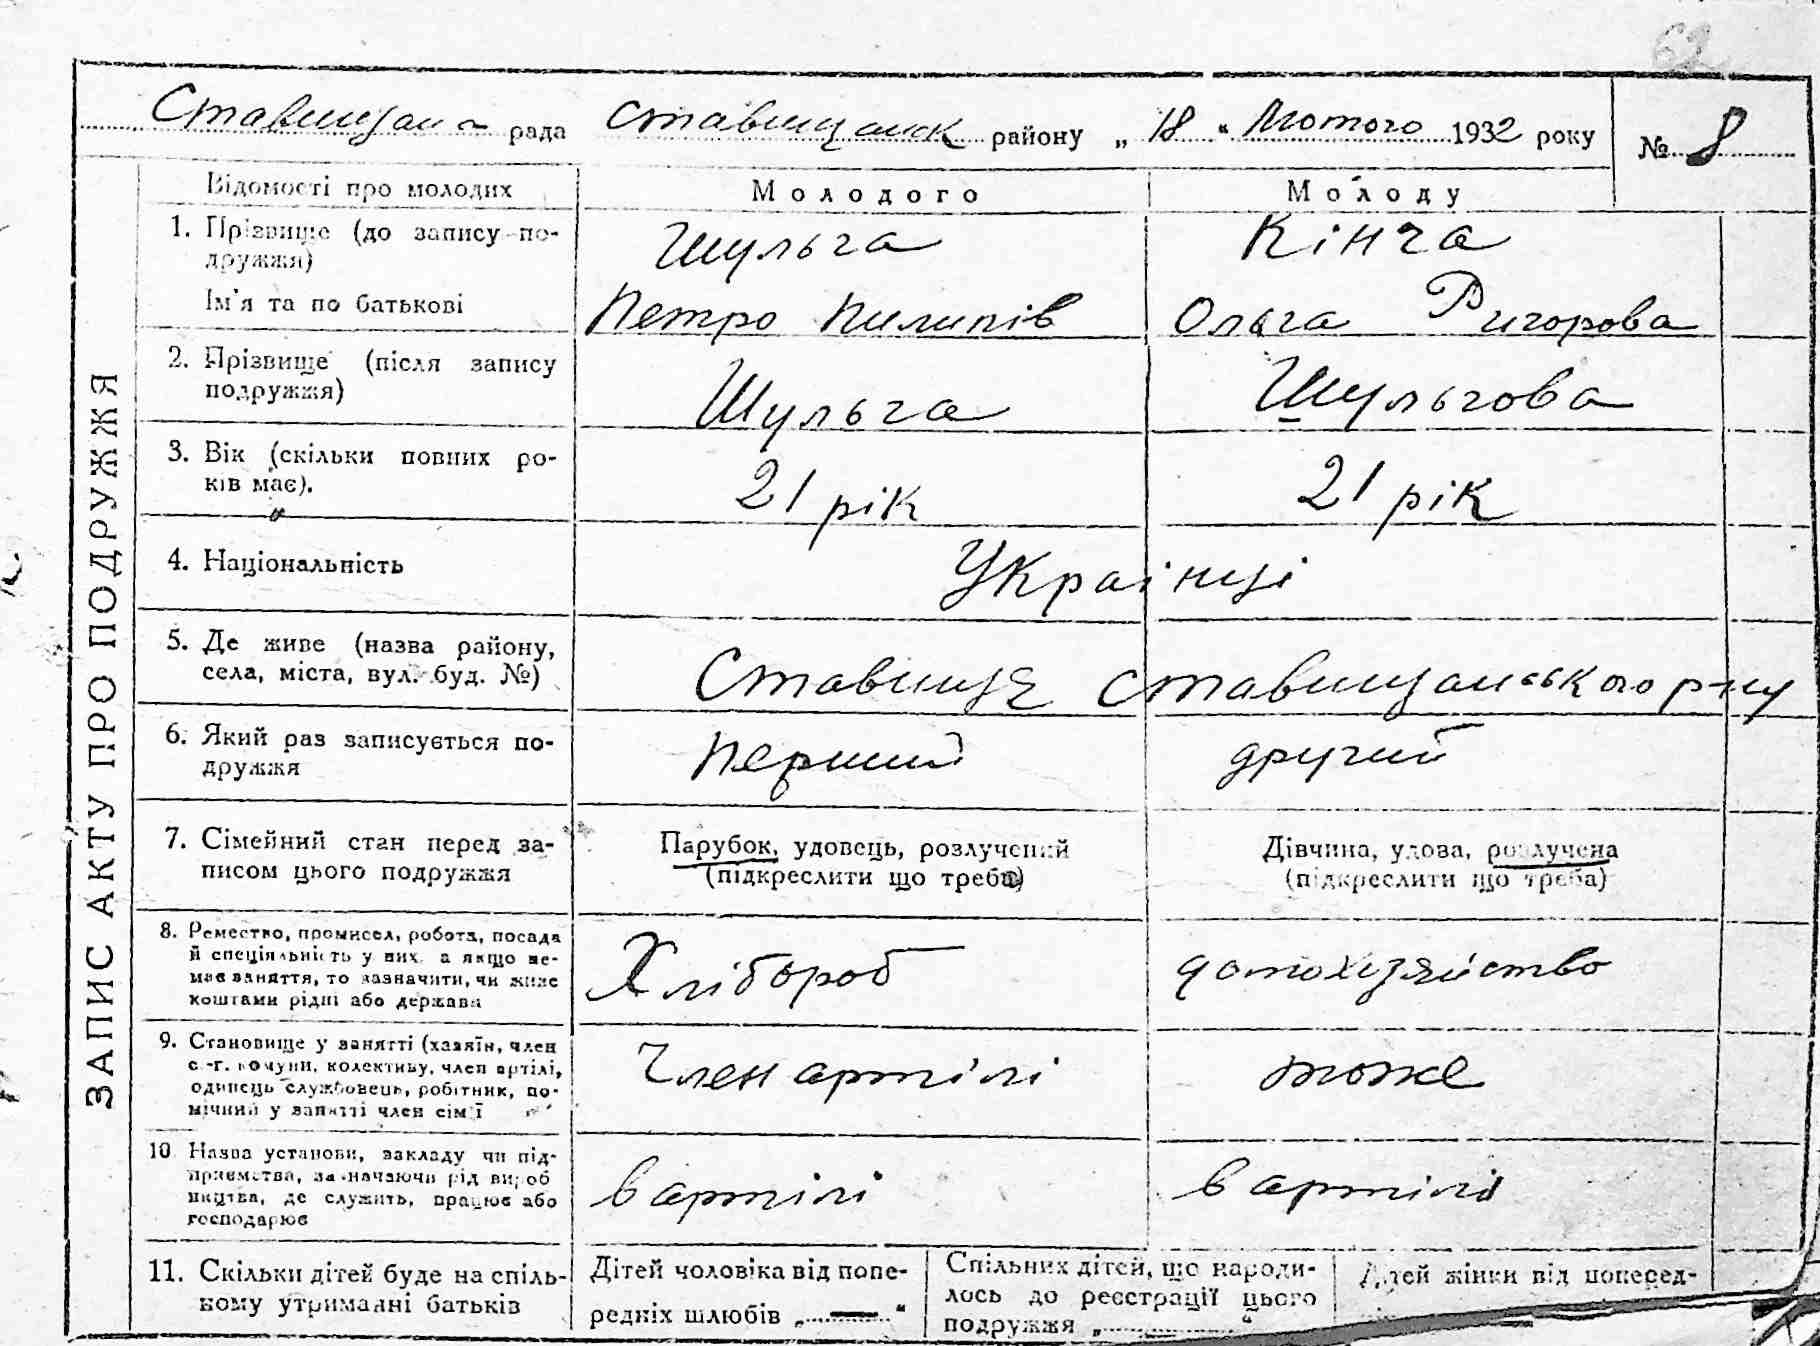 62
Ставищан а рада Ставищанск району „ 18 “ Лютого 1932 року
№ 8
ЗАПИС АКТУ ПРО ПОДРУЖЖЯ
Відомості про молодих Молодого Молоду
1. Прізвище (до запису по-
дружжя) Шульга Кінча
Ім'я та по батькові Петро Пилипів Ольга Ригорова
2. Прізвище (після запису
подружжя) Шульга Шульгова
3. Вік (скільки повних ро-
ків має). 21 рік 21 рік
4. Національність Українці
5. Де живе (назва району,
села, міста, вул. буд. №) Ставище Ставищанського р-ну
6. Який раз записується по-
дружжя перший другий
7. Сімейний стан перед за-
писом цього подружжя
Парубок, удовець, розлучений
(підкреслити що треба)
Дівчина, удова, розлучена
(підкреслити що треба)
8. Ремество, промисел, робота, посада
й спеціяльність у них, а якщо не-
має заняття, то зазначити, чи живе
коштами рідні або держави
Хлібороб домохзяйство
9. Становище у занятті (хазяїн, член
с.-г. комуни, колективу, член артілі,
одинець службовець, робітник, по-
мічний у занятті член сім'ї
Член артілі тоже
10 Назва установи, закладу чи під-
приємства, зазначаючи рід вироб
ництва, де служить, працює або
господарює
в артілі в артілі
11. Скільки дітей буде на спіль-
ному утриманні батьків
Дітей чоловіка від попе-
редніх шлюбів „ — “
Спільних дітей, що народи-
лось до реєстрації цього
подружжя „ — “
Дітей жінки від поперед-